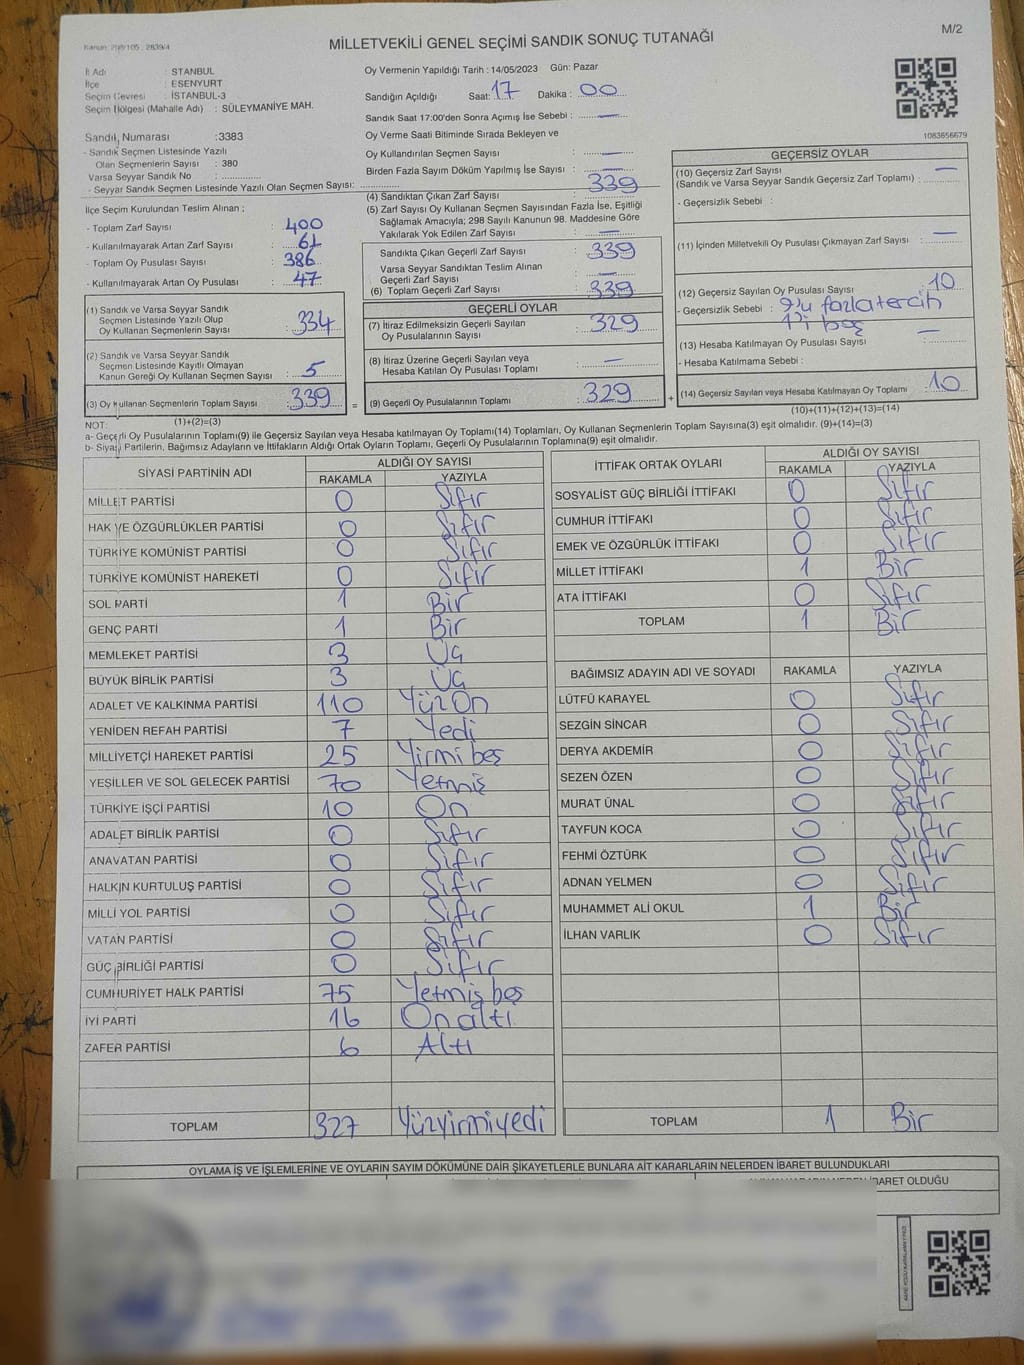 M/2
Kanun: 298/105 ; 2839/4
MİLLETVEKİLİ GENEL SEÇİMİ SANDIK SONUÇ TUTANAĞI
İl Adı : İSTANBUL
İlçe : ESENYURT
Seçim Çevresi : İSTANBUL-3
Seçim Bölgesi (Mahalle Adı) : SÜLEYMANİYE MAH.
Sandık Numarası :3383
- Sandık Seçmen Listesinde Yazılı
Olan Seçmenlerin Sayısı : 380
Varsa Seyyar Sandık No :
- Seyyar Sandık Seçmen Listesinde Yazılı Olan Seçmen Sayısı:
Oy Vermenin Yapıldığı Tarih : 14/05/2023 Gün: Pazar
Sandığın Açıldığı Saat: 17 Dakika : 00
Sandık Saat 17:00'den Sonra Açımış İse Sebebi : —
Oy Verme Saati Bitiminde Sırada Bekleyen ve
Oy Kullandırılan Seçmen Sayısı : —
Birden Fazla Sayım Döküm Yapılmış İse Sayısı : —
1083656679
İlçe Seçim Kurulundan Teslim Alınan ;
- Toplam Zarf Sayısı : 400
- Kullanılmayarak Artan Zarf Sayısı : 61
- Toplam Oy Pusulası Sayısı : 386
- Kullanılmayarak Artan Oy Pusulası : 47
(1) Sandık ve Varsa Seyyar Sandık
Seçmen Listesinde Yazılı Olup
Oy Kullanan Seçmenlerin Sayısı : 334
(2) Sandık ve Varsa Seyyar Sandık
Seçmen Listesinde Kayıtlı Olmayan
Kanun Gereği Oy Kullanan Seçmen Sayısı : 5
(3) Oy Kullanan Seçmenlerin Toplam Sayısı : 339
(1)+(2)=(3)
(4) Sandıktan Çıkan Zarf Sayısı : 339
(5) Zarf Sayısı Oy Kullanan Seçmen Sayısından Fazla İse, Eşitliği
Sağlamak Amacıyla; 298 Sayılı Kanunun 98. Maddesine Göre
Yakılarak Yok Edilen Zarf Sayısı : —
Sandıkta Çıkan Geçerli Zarf Sayısı : 339
Varsa Seyyar Sandıktan Teslim Alınan
Geçerli Zarf Sayısı : —
(6) Toplam Geçerli Zarf Sayısı : 339
GEÇERLİ OYLAR
(7) İtiraz Edilmeksizin Geçerli Sayılan
Oy Pusulalarının Sayısı : 329
(8) İtiraz Üzerine Geçerli Sayılan veya
Hesaba Katılan Oy Pusulası Toplamı : —
= (9) Geçerli Oy Pusulalarının Toplamı : 329 +
GEÇERSİZ OYLAR
(10) Geçersiz Zarf Sayısı
(Sandık ve Varsa Seyyar Sandık Geçersiz Zarf Toplamı) : —
- Geçersizlik Sebebi :
(11) İçinden Milletvekili Oy Pusulası Çıkmayan Zarf Sayısı : —
(12) Geçersiz Sayılan Oy Pusulası Sayısı : 10
- Geçersizlik Sebebi : 9'u fazla tercih
1'i boş
(13) Hesaba Katılmayan Oy Pusulası Sayısı : —
- Hesaba Katılmama Sebebi :
(14) Geçersiz Sayılan veya Hesaba Katılmayan Oy Toplamı : 10
(10)+(11)+(12)+(13)=(14)
NOT:
a- Geçerli Oy Pusulalarının Toplamı(9) ile Geçersiz Sayılan veya Hesaba katılmayan Oy Toplamı(14) Toplamları, Oy Kullanan Seçmenlerin Toplam Sayısına(3) eşit olmalıdır. (9)+(14)=(3)
b- Siyasi Partilerin, Bağımsız Adayların ve İttifakların Aldığı Ortak Oyların Toplamı, Geçerli Oy Pusulalarının Toplamına(9) eşit olmalıdır.
SİYASİ PARTİNİN ADI ALDIĞI OY SAYISI
RAKAMLA YAZIYLA
MİLLET PARTİSİ 0 Sıfır
HAK VE ÖZGÜRLÜKLER PARTİSİ 0 Sıfır
TÜRKİYE KOMÜNİST PARTİSİ 0 Sıfır
TÜRKİYE KOMÜNİST HAREKETİ 0 Sıfır
SOL PARTİ 1 Bir
GENÇ PARTİ 1 Bir
MEMLEKET PARTİSİ 3 Üç
BÜYÜK BİRLİK PARTİSİ 3 Üç
ADALET VE KALKINMA PARTİSİ 110 Yüz On
YENİDEN REFAH PARTİSİ 7 Yedi
MİLLİYETÇİ HAREKET PARTİSİ 25 Yirmi beş
YEŞİLLER VE SOL GELECEK PARTİSİ 70 Yetmiş
TÜRKİYE İŞÇİ PARTİSİ 10 On
ADALET BİRLİK PARTİSİ 0 Sıfır
ANAVATAN PARTİSİ 0 Sıfır
HALKIN KURTULUŞ PARTİSİ 0 Sıfır
MİLLİ YOL PARTİSİ 0 Sıfır
VATAN PARTİSİ 0 Sıfır
GÜÇ BİRLİĞİ PARTİSİ 0 Sıfır
CUMHURİYET HALK PARTİSİ 75 Yetmiş beş
İYİ PARTİ 16 On altı
ZAFER PARTİSİ 6 Altı
TOPLAM 327 Yüzyirmiyedi
İTTİFAK ORTAK OYLARI ALDIĞI OY SAYISI
RAKAMLA YAZIYLA
SOSYALİST GÜÇ BİRLİĞİ İTTİFAKI 0 Sıfır
CUMHUR İTTİFAKI 0 Sıfır
EMEK VE ÖZGÜRLÜK İTTİFAKI 0 Sıfır
MİLLET İTTİFAKI 1 Bir
ATA İTTİFAKI 0 Sıfır
TOPLAM 1 Bir
BAĞIMSIZ ADAYIN ADI VE SOYADI RAKAMLA YAZIYLA
LÜTFÜ KARAYEL 0 Sıfır
SEZGİN SİNCAR 0 Sıfır
DERYA AKDEMİR 0 Sıfır
SEZEN ÖZEN 0 Sıfır
MURAT ÜNAL 0 Sıfır
TAYFUN KOCA 0 Sıfır
FEHMİ ÖZTÜRK 0 Sıfır
ADNAN YELMEN 0 Sıfır
MUHAMMET ALİ OKUL 1 Bir
İLHAN VARLIK 0 Sıfır
TOPLAM 1 Bir
OYLAMA İŞ VE İŞLEMLERİNE VE OYLARIN SAYIM DÖKÜMÜNE DAİR ŞİKAYETLERLE BUNLARA AİT KARARLARIN NELERDEN İBARET BULUNDUKLARI
İBARET OLDUĞU